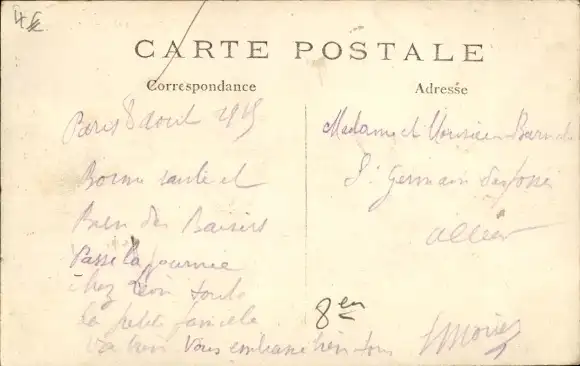 CARTE POSTALE
Correspondance
Adresse
Paris 8 Aout 1915
Bonne santé et
Bien des Baisers
Passé la journée
chez Léon toute
la petite famille
va bien Vous embrasse bien tous
Madame et Monsieur
St Germain des fossés
Allier
8 en